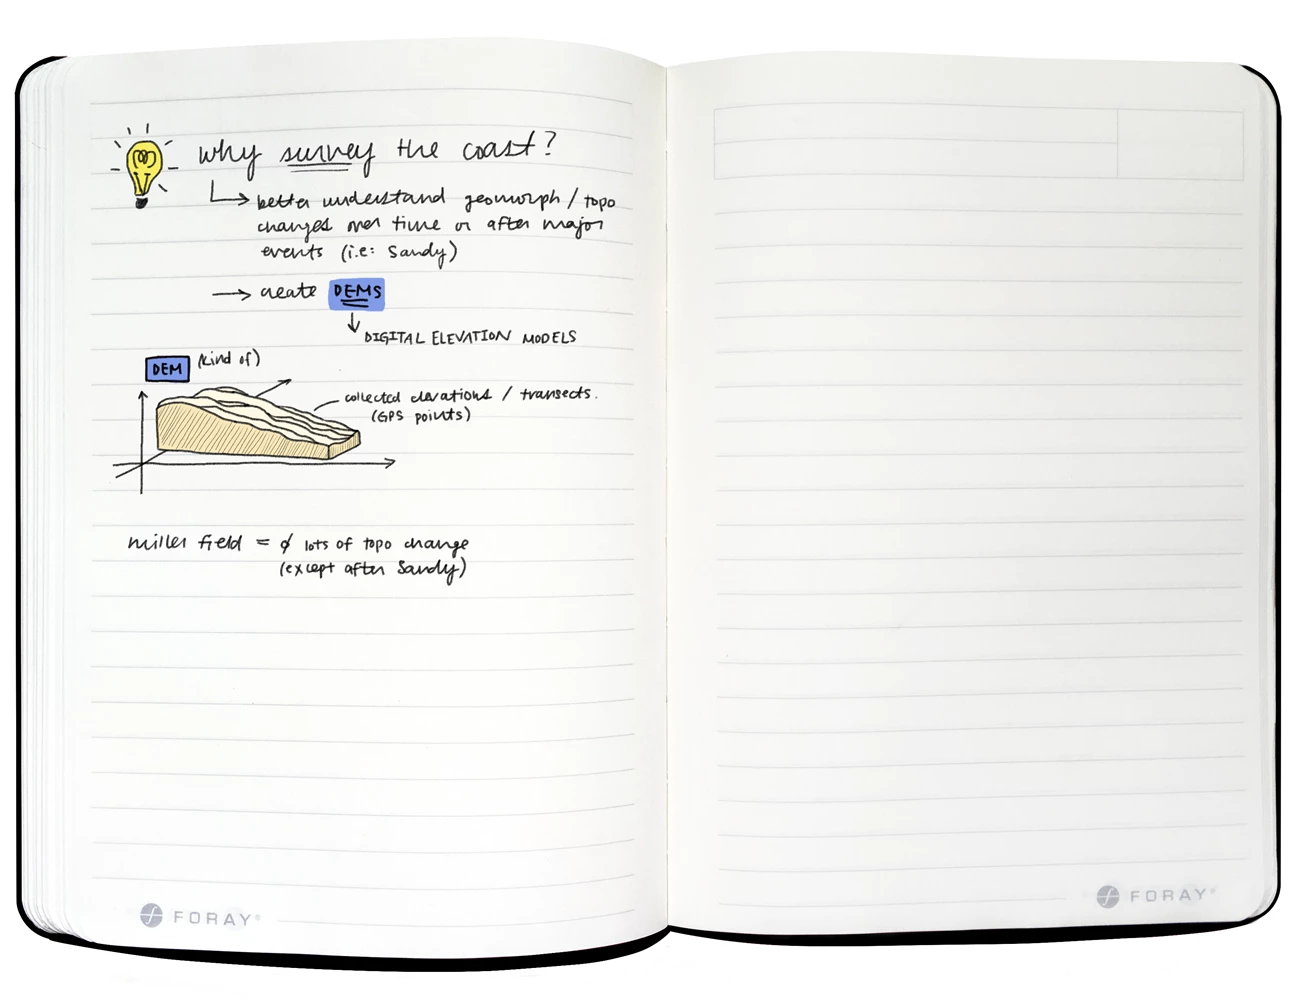 why survey the coast?
better understand geomorph / topo
changes over time or after major
events (i.e: Sandy)
create DEMS
DIGITAL ELEVATION MODELS
DEM (kind of)
collected elevations / transects.
(GPS points)
miller field = ∅ lots of topo change
(except after Sandy)
FORAY®
FORAY®